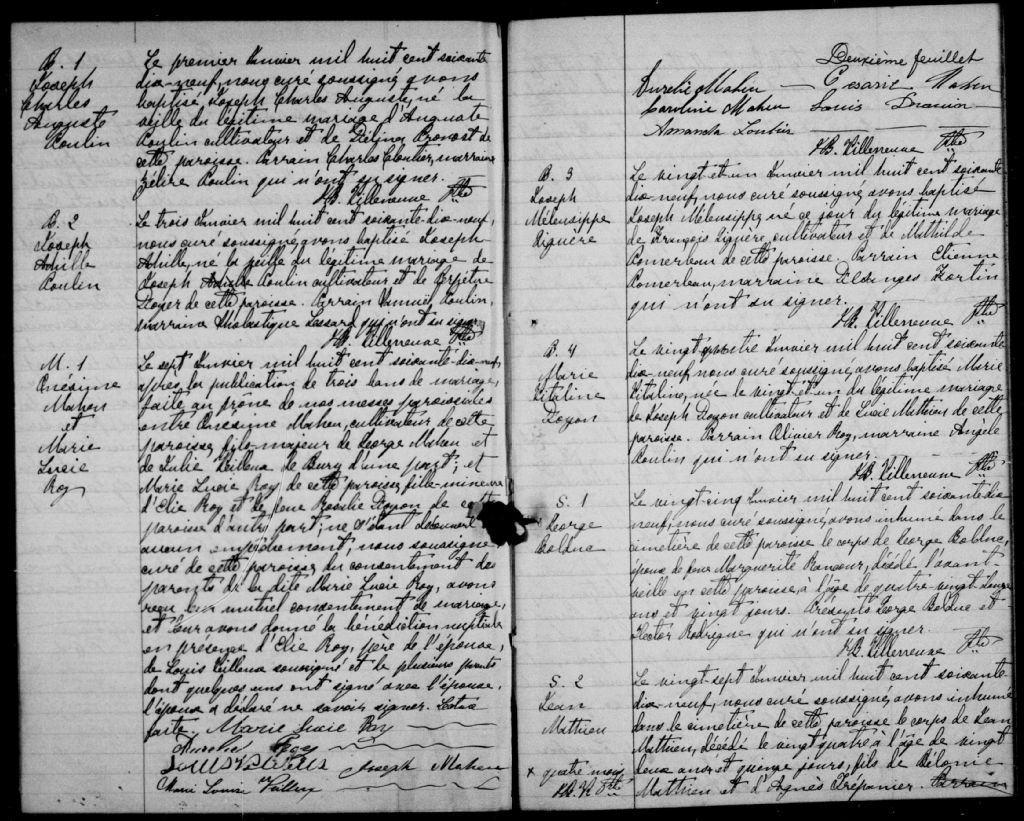 B. 1
Joseph
Charles
Auguste
Poulin
Le premier Janvier mil huit cent soixante
dix-neuf, nous curé soussigné avons
baptisé Joseph Charles Auguste, né la
veille du légitime mariage d'Auguste
Poulin cultivateur et de Provost de
cette paroisse. Parrain Charles Cloutier, marraine
Zélire Poulin qui n'ont su signer.
J.B. Villeneuve Ptre
B. 2
Joseph
Achille
Poulin
Le trois Janvier mil huit cent soixante-dix-neuf,
nous curé soussigné, avons baptisé Joseph
Achille, né la veille du légitime mariage de
Joseph Poulin cultivateur et de Perpétue
Doyer de cette paroisse. Parrain Poulin,
marraine Scholastique Lessard qui n'ont su signer
J.B. Villeneuve Ptre
M. 1
Onésime
Maheu
et
Marie
Lucie
Roy
Le sept Janvier mil huit cent soixante-dix-neuf,
après la publication de trois bans de mariage,
faite au prône de nos messes paroissiales
entre Onésime Maheu, cultivateur de cette
paroisse, fils-majeur de George Maheu et
de Julie Veilleux de Bury d'une part; et
Marie Lucie Roy de cette paroisse, fille-mineure
d'Elie Roy et de feue Rosalie Doyon de cette
paroisse d'autre part; ne s'étant découvert
aucun empêchement, nous soussigné
curé de cette paroisse, du consentement des
parents de la dite Marie Lucie Roy, avons
reçu leur mutuel consentement de mariage,
et leur avons donné la bénédiction nuptiale
en présence d'Elie Roy, père de l'épouse,
de Louis Veilleux soussigné et de plusieurs parents
dont quelques uns ont signé avec l'épouse,
l'époux a déclaré ne savoir signer. Lecture
faite. Marie Lucie Roy
Roy
Joseph Maheu
Marie Louise Veilleux
Deuxième feuillet
Aurélie Maheu Cesarie Maheu
Caroline Maheu Louis Drouin
Amanda Loubier
J.B. Villeneuve Ptre
B. 3
Joseph
Mélensippe
Giguère
Le vingt-et-un Janvier mil huit cent soixante
dix-neuf, nous curé soussigné avons baptisé
Joseph Mélensippe, né ce jour du légitime mariage
de François Giguère, cultivateur et de Mathilde
Pomerleau de cette paroisse. Parrain Etienne
Pomerleau, marraine Desanges Fortin
qui n'ont su signer.
J.B. Villeneuve Ptre
B. 4
Marie
Vitaline
Doyon
Le vingt quatre Janvier mil huit cent soixante
dix-neuf, nous curé soussigné, avons baptisé Marie
Vitaline, née le vingt-et-un du légitime mariage
de Joseph Doyon cultivateur et de Lucie Mathieu de cette
paroisse. Parrain Olivier Roy, marraine Angèle
Poulin qui n'ont su signer.
J.B. Villeneuve Ptre
S. 1
George
Bolduc
Le vingt-cinq Janvier mil huit cent soixante dix
neuf, nous curé soussigné, avons inhumé dans le
cimetière de cette paroisse le corps de George Bolduc,
époux de feue Marguerite Rancour, décédé l'avant-
veille en cette paroisse, à l'âge de quatre vingt
ans et vingt jours. Présents George Bolduc et
Hector Rodrigue qui n'ont su signer.
J.B. Villeneuve Ptre
S. 2
Jean
Mathieu
Le vingt-sept Janvier mil huit cent soixante
dix-neuf, nous curé soussigné, avons inhumé
dans le cimetière de cette paroisse le corps de Jean
Mathieu, décédé le vingt quatre à l'âge de vingt
deux ans et quinze jours, fils de Bélonie
Mathieu et d'Agnès Trépanier. Parrain
x quatre mois
J.B.V. Ptre